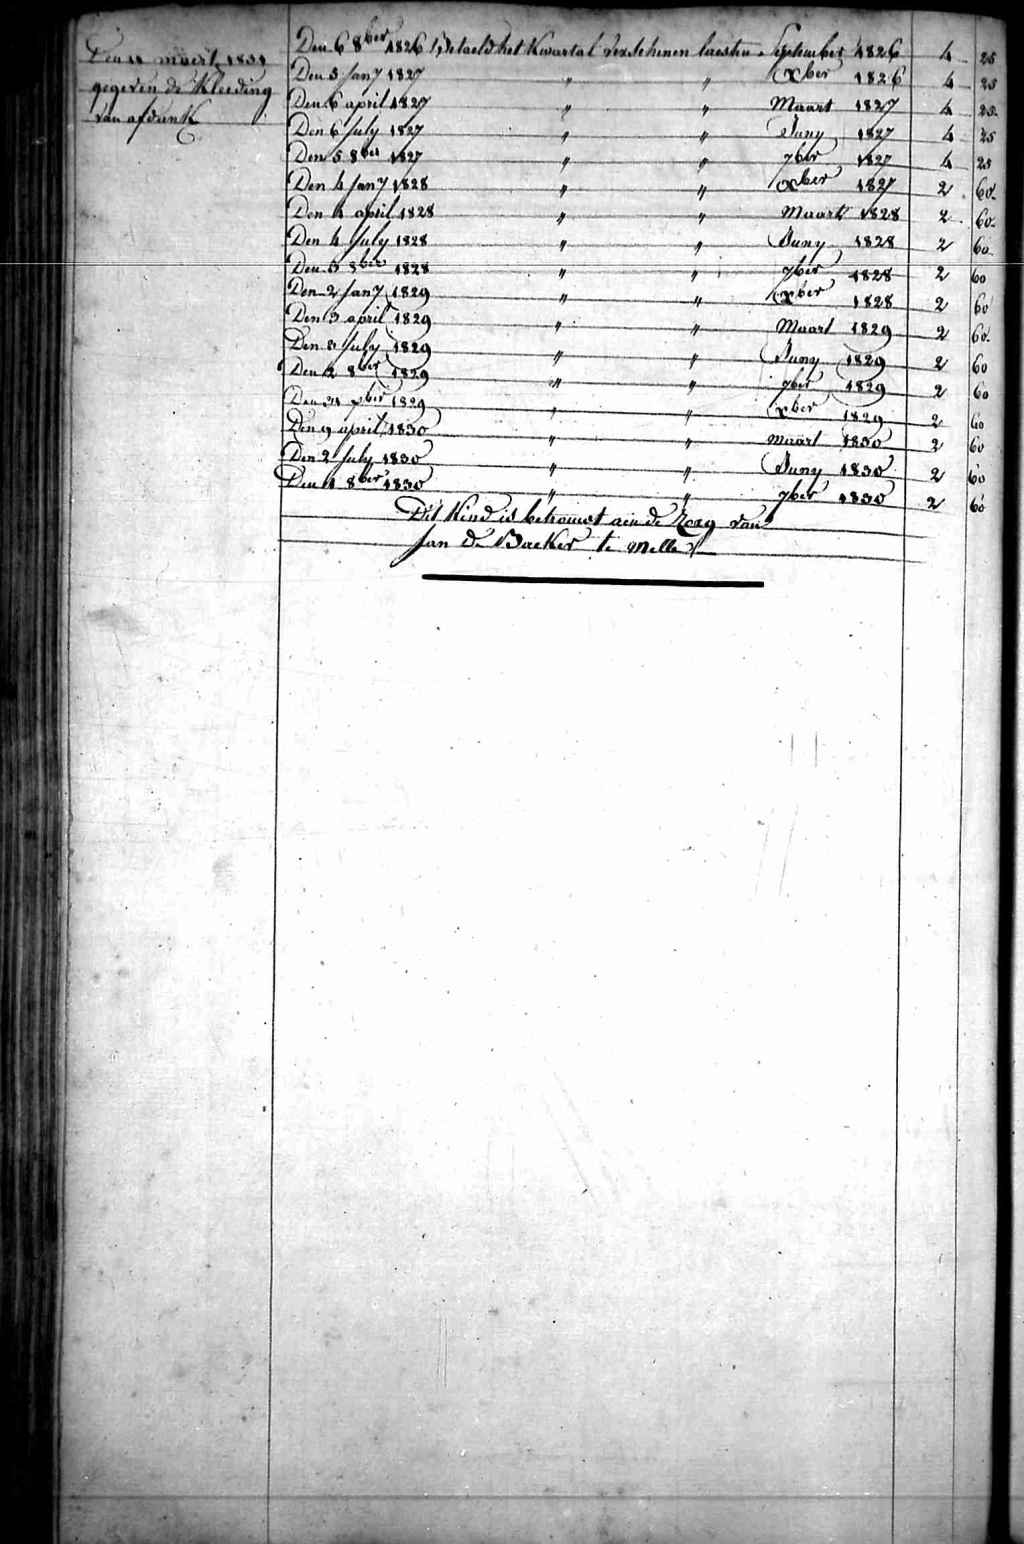 Den 11 maert 1831
gegeven de Kleeding
van afdank
Den 6 8ber 1826 Betaeld het Kwartal verschenen laesten September 1826 4 25
Den 5 Jany 1827 " " Xber 1826 4 25
Den 6 april 1827 " " Maart 1827 4 25
Den 6 July 1827 " " Juny 1827 4 25
Den 5 8ber 1827 " " 7ber 1827 4 25
Den 4 Jany 1828 " " Xber 1827 2 60
Den 4 april 1828 " " Maart 1828 2 60
Den 4 July 1828 " " Juny 1828 2 60
Den 3 8ber 1828 " " 7ber 1828 2 60
Den 2 Jany 1829 " " Xber 1828 2 60
Den 3 april 1829 " " Maart 1829 2 60
Den 3 July 1829 " " Juny 1829 2 60
Den 2 8ber 1829 " " 7ber 1829 2 60
Den 31 Xber 1829 " " Xber 1829 2 60
Den 9 april 1830 " " maart 1830 2 60
Den 2 July 1830 " " Juny 1830 2 60
Den 1 8ber 1830 " " 7ber 1830 2 60
Dit Kind is betrouwt aen de Zorg van
Jan De Backer te Melle